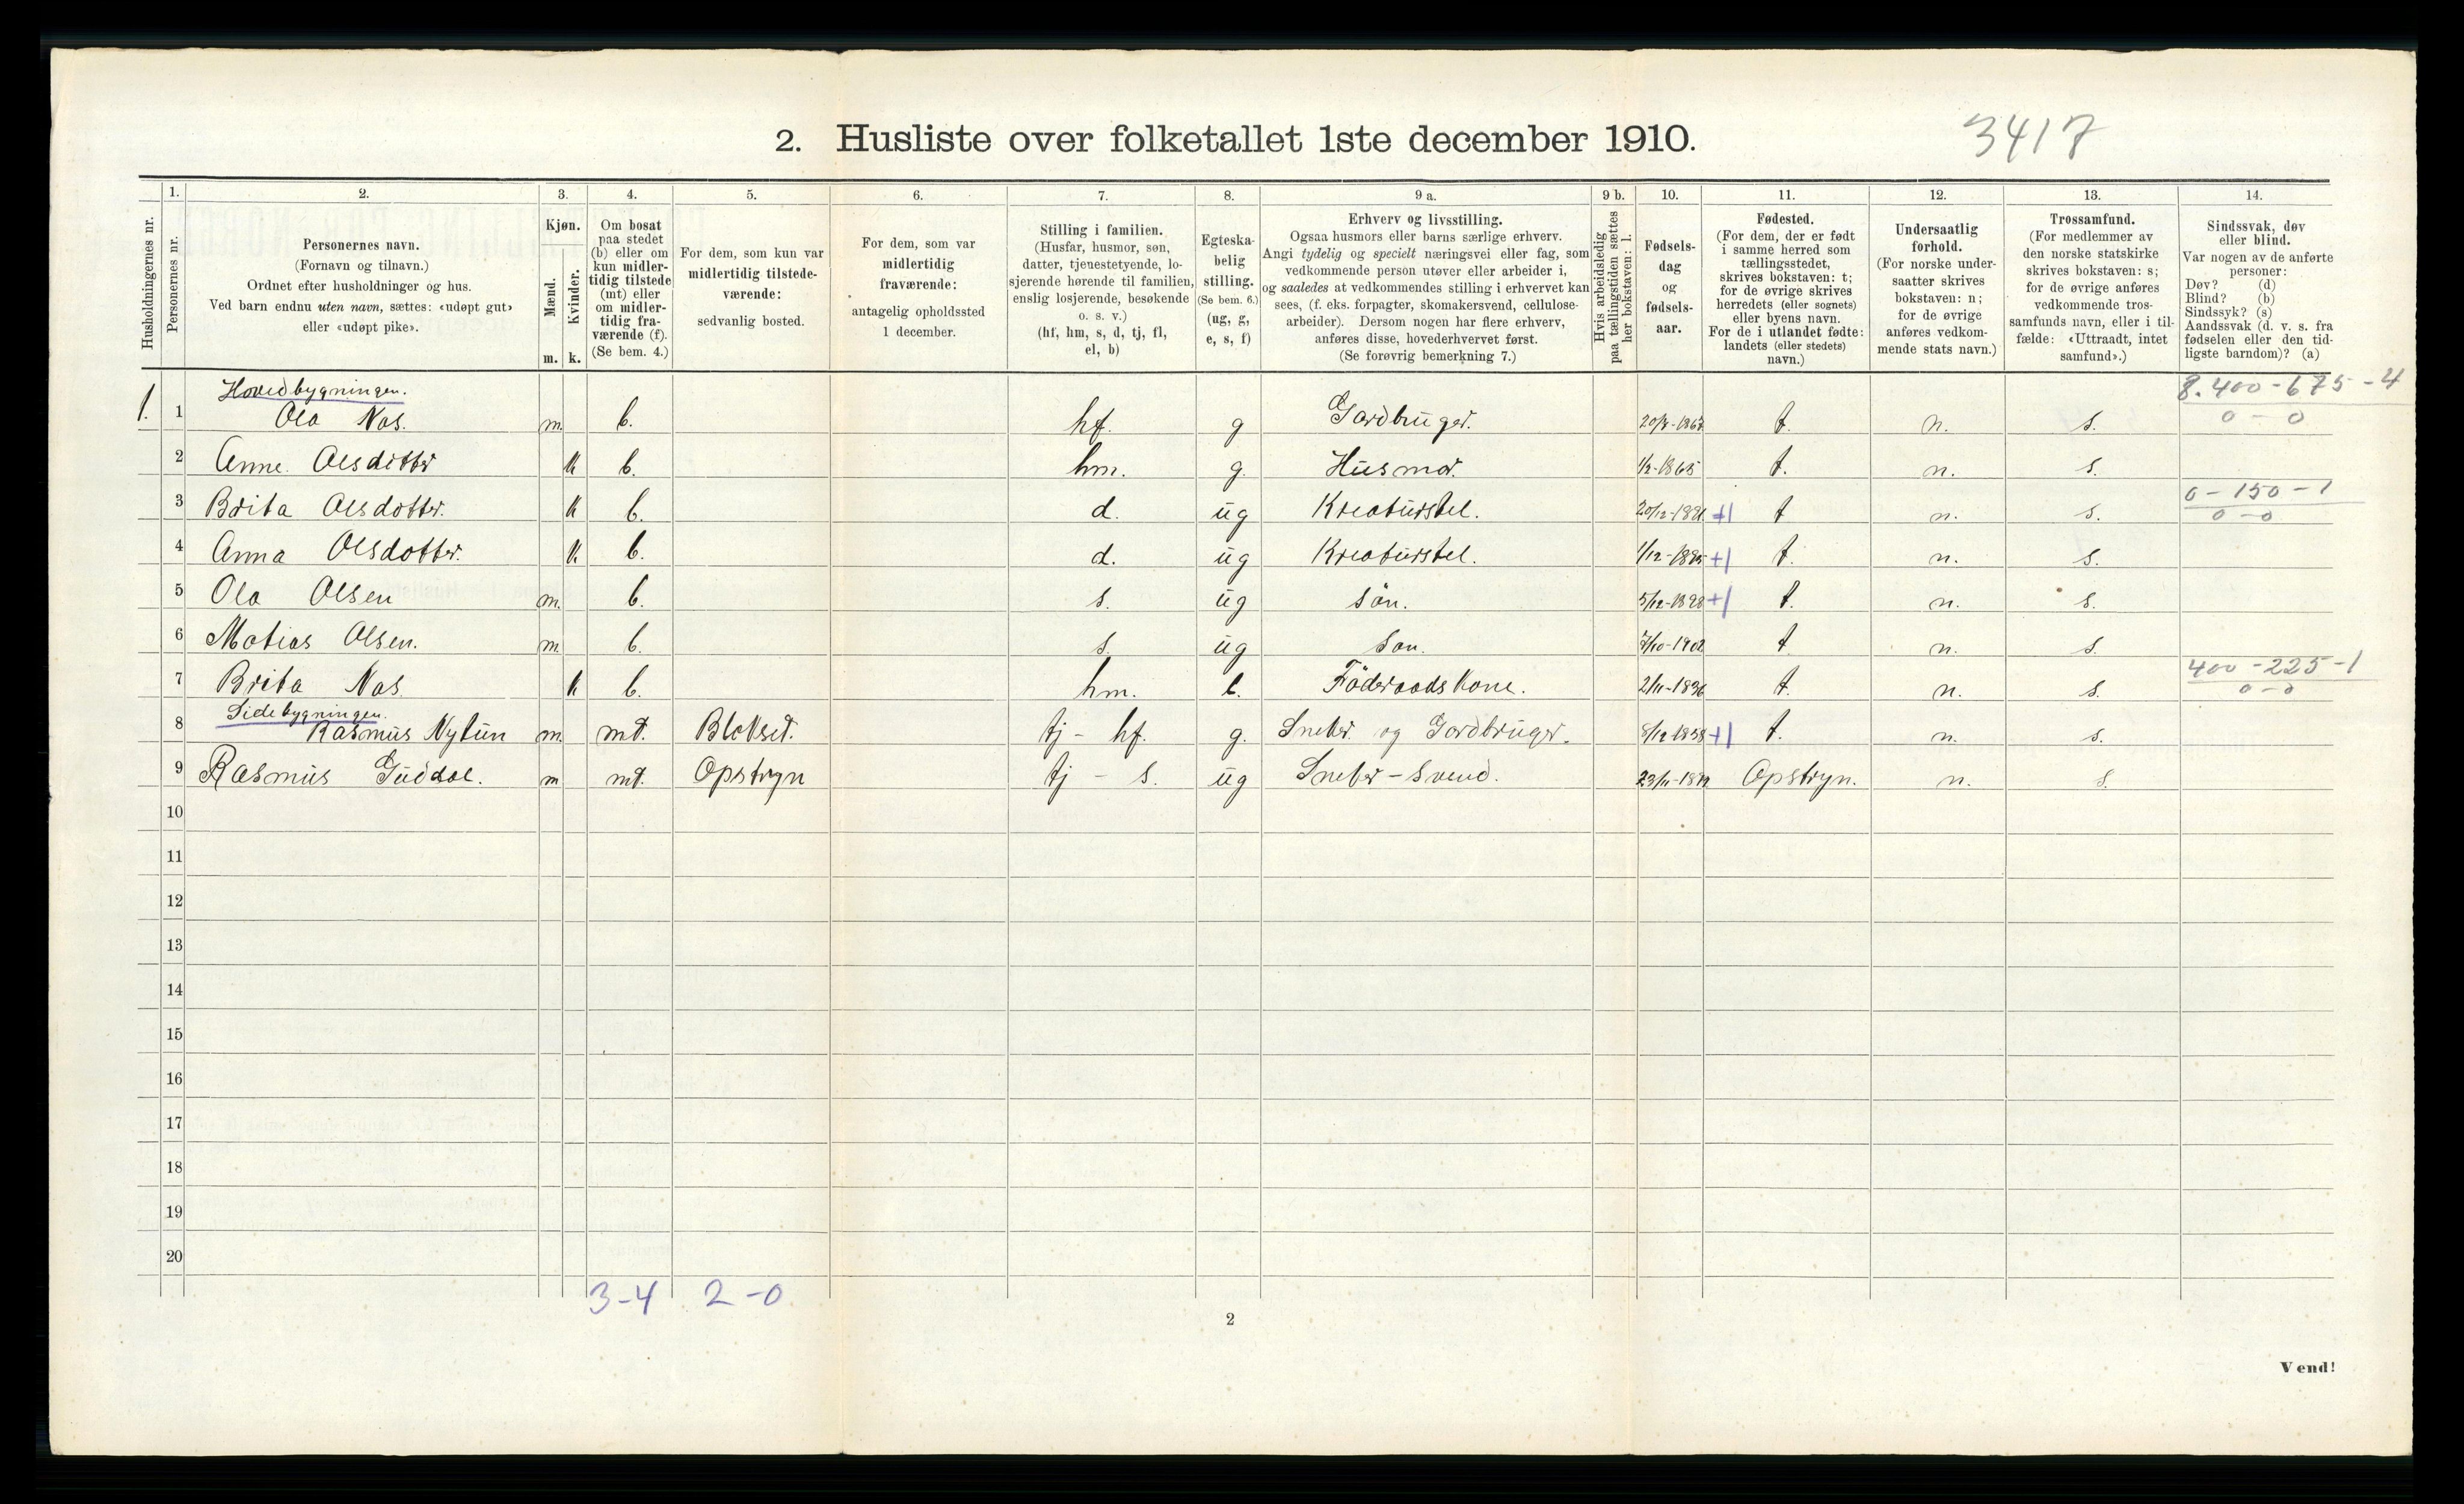 2. Husliste over folketallet 1ste december 1910.
3417
Husholdningernes nr.
1.
Personernes nr.
2.
Personernes navn.
(Fornavn og tilnavn.)
Ordnet efter husholdninger og hus.
Ved barn endnu uten navn, sættes: «udøpt gut»
eller «udøpt pike».
3.
Kjøn.
Mænd.
Kvinder.
m. k.
4.
Om bosat
paa stedet
(b) eller om
kun midler-
tidig tilstede
(mt) eller
om midler-
tidig fra-
værende (f).
(Se bem. 4.)
5.
For dem, som kun var
midlertidig tilstede-
værende:
sedvanlig bosted.
6.
For dem, som var
midlertidig
fraværende:
antagelig opholdssted
1 december.
7.
Stilling i familien.
(Husfar, husmor, søn,
datter, tjenestetyende, lo-
sjerende hørende til familien,
enslig losjerende, besøkende
o. s. v.)
(hf, hm, s, d, tj, fl,
el, b)
8.
Egteska-
belig
stilling.
(Se bem. 6.)
(ug, g,
e, s, f)
9 a.
Erhverv og livsstilling.
Ogsaa husmors eller barns særlige erhverv.
Angi tydelig og specielt næringsvei eller fag, som
vedkommende person utøver eller arbeider i,
og saaledes at vedkommendes stilling i erhvervet kan
sees, (f. eks. forpagter, skomakersvend, cellulose-
arbeider). Dersom nogen har flere erhverv,
anføres disse, hovederhvervet først.
(Se forøvrig bemerkning 7.)
9 b.
Hvis arbeidsledig
paa tællingstiden sættes
her bokstaven: l.
10.
Fødsels-
dag
og
fødsels-
aar.
11.
Fødested.
(For dem, der er født
i samme herred som
tællingsstedet,
skrives bokstaven: t;
for de øvrige skrives
herredets (eller sognets)
eller byens navn.
For de i utlandet fødte:
landets (eller stedets)
navn.)
12.
Undersaatlig
forhold.
(For norske under-
saatter skrives
bokstaven: n;
for de øvrige
anføres vedkom-
mende stats navn.)
13.
Trossamfund.
(For medlemmer av
den norske statskirke
skrives bokstaven: s;
for de øvrige anføres
vedkommende tros-
samfunds navn, eller i til-
fælde: «Uttraadt, intet
samfund».)
14.
Sindssvak, døv
eller blind.
Var nogen av de anførte
personer:
Døv? (d)
Blind? (b)
Sindssyk? (s)
Aandssvak (d. v. s. fra
fødselen eller den tid-
ligste barndom)? (a)
Hovedbygningen. 8.400-675-4
1. 1 Ola Nos. m. b. hf. g Gardbruger. t. n. s. 0 - 0
2 Anne Olsdotter k b. hm. g. Husmor. 1/2-1865 t. n. s.
3 Brita Olsdotter. k b. d. ug Kreaturstel. +1 t n. s. 0-150-1
0-0
4 Anna Olsdotter. k b. d. ug Kreaturstel. 1/12-1895 +1 t. n. s.
5 Ola Olsen m. b. s. ug sön. 5/12-1898 +1 t. n. s.
6 Matias Olsen. m. b. s. ug son. 7/10-1902 t n. s.
7 Brita Nos k b. hm. e. Föderaadskone. 2/11-1836 t. n. s. 400-225-1
0-0
Sidebygningen.
8 Rasmus Nylun m. mt. Blokset. tj - hf. g. Sneker og Gardbruger. 8/12-1858 +1 t. n. s.
9 Rasmus Guddal. m mt. Opstryn tj - s. ug Sneker-Svend. Opstryn. n. s.
10
11
12
13
14
15
16
17
18
19
20
3-4 2-0
2
Vend!